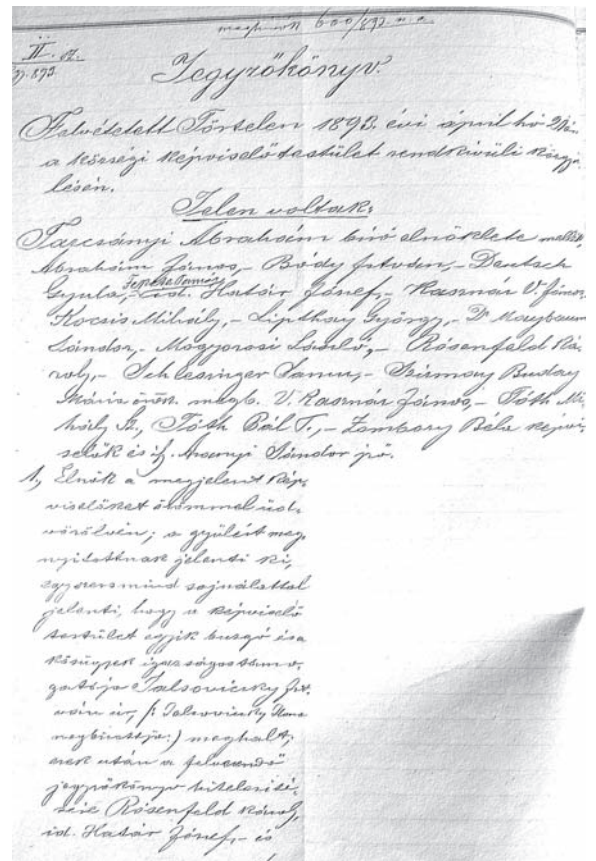 600/893. n. e.
II. sz.
893
Jegyzőkönyv.
Felvétetett Törtelen 1893. évi április hó
a községi képviselőtestület rendkívüli közgyű-
lésén.
Jelen voltak:
Tarcsányi Abrahám biró elnöklete mellett
Abrahám János,- Bódy István,- Deutsch
Gyula,- id. Határ József,- Kasznár V. János
Kocsis Mihály,- Lipthay György,- Dr Maybaum
Sándor,- Mogyorosi László,- Rósenfeld Ká-
roly,- Schlesinger Samu,- Szirmay Buday
Mária örök. megb. V. Kasznár János,- Tóth Mi-
hály Sz., Tóth Pál T.,- Zombory Béla képvi-
selők és ifj. Aranyi Sándor jző.
1., Elnök a megjelent kép-
viselőket örömmel üd-
vözölvén; a gyűlést meg-
nyitottnak jelenti ki,
egyszersmind sajnálattal
jelenti, hogy a képviselő
testület egyik buzgó és a
közügyek igazságos támo-
gatója Talsoviczky Ist-
ván úr, /: Talsoviczky
megbizottja:) meghalt;
ezek után a felveendő
jegyzőkönyv hitelesíté-
seie Rósenfeld károly,
id. Határ József,- és